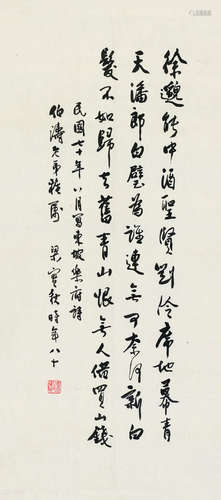 徐邈能中酒聖賢劉伶席地幕青
天潘郎白璧為誰連無可奈何新白
髮不如歸去舊青山恨無人借買山錢
民國七十年八月寫東坡樂府詩
伯濤老弟雅屬
梁實秋時年八十